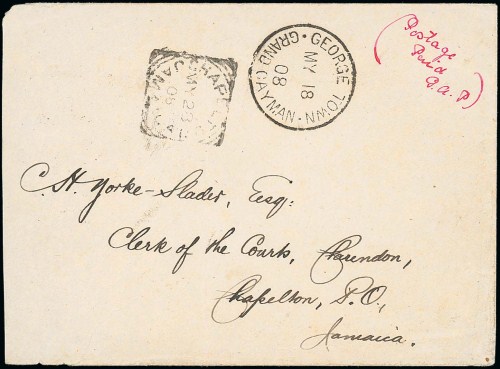 (Postage
Paid
G.A.P)
GEORGE TOWN · GRAND CAYMAN ·
MY 18
08
CHAPELTON
MY 23
08
JAMAICA
C. H. Yorke-Slader, Esq:
Clerk of the Courts, Clarendon,
Chapelton, P.O.,
Jamaica.